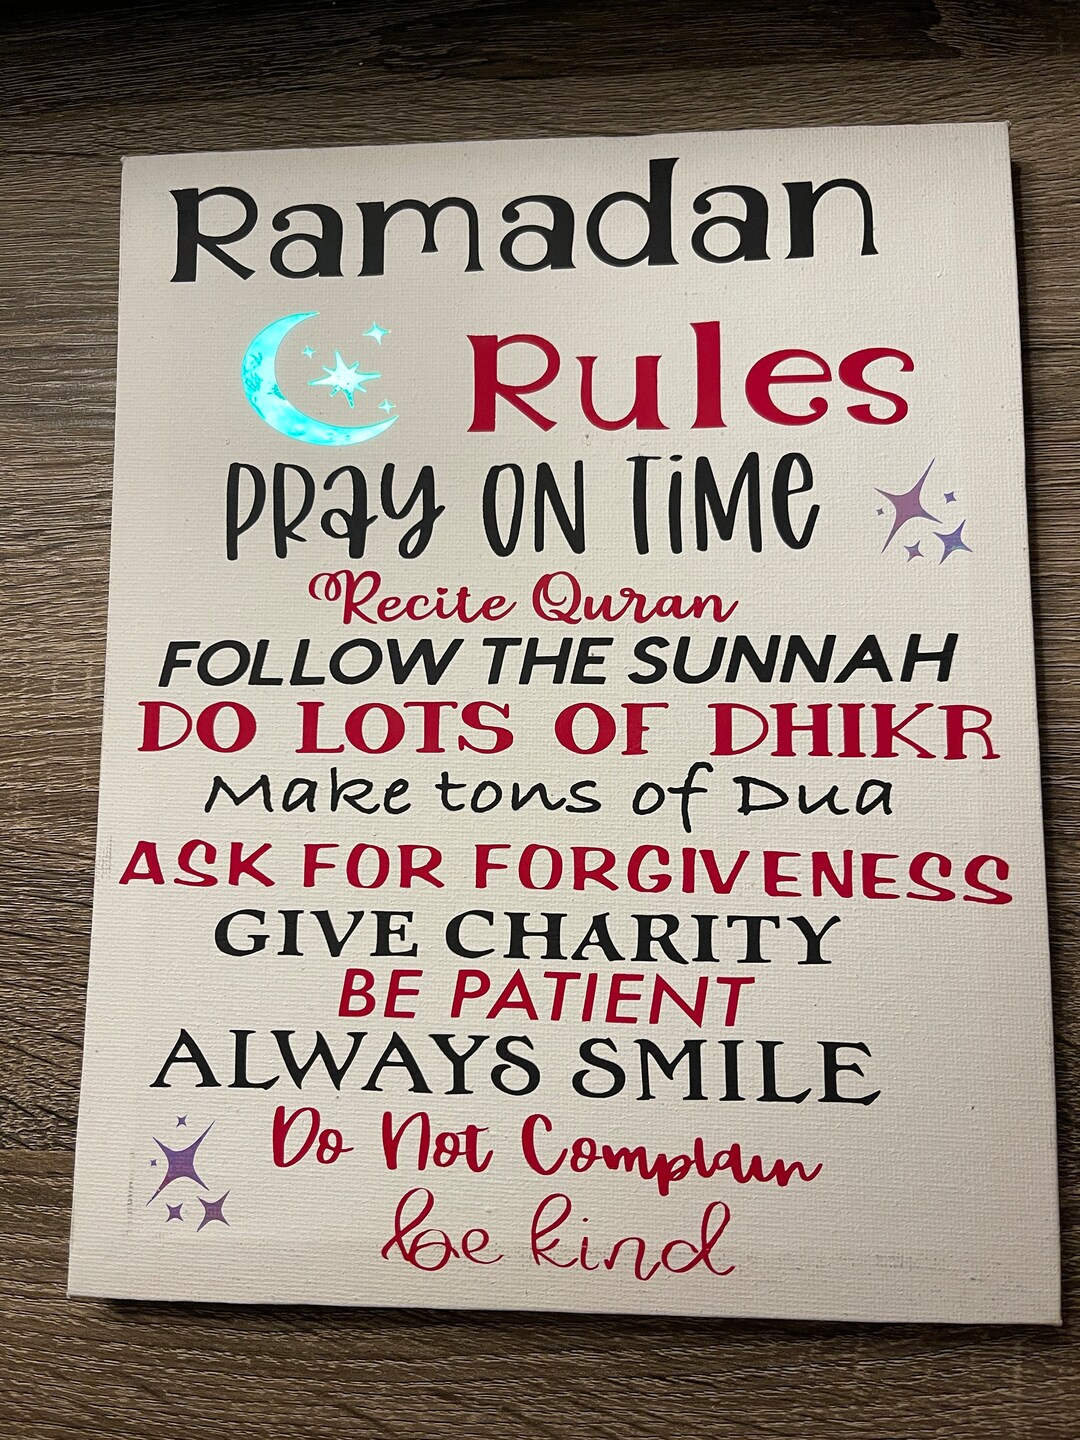 Ramadan
Rules
PRay ON TiMe
Recite Quran
FOLLOW THE SUNNAH
DO LOTS OF DHIKR
Make tons of Dua
ASK FOR FORGIVENESS
GIVE CHARITY
BE PATIENT
ALWAYS SMILE
Do Not Complain
be kind